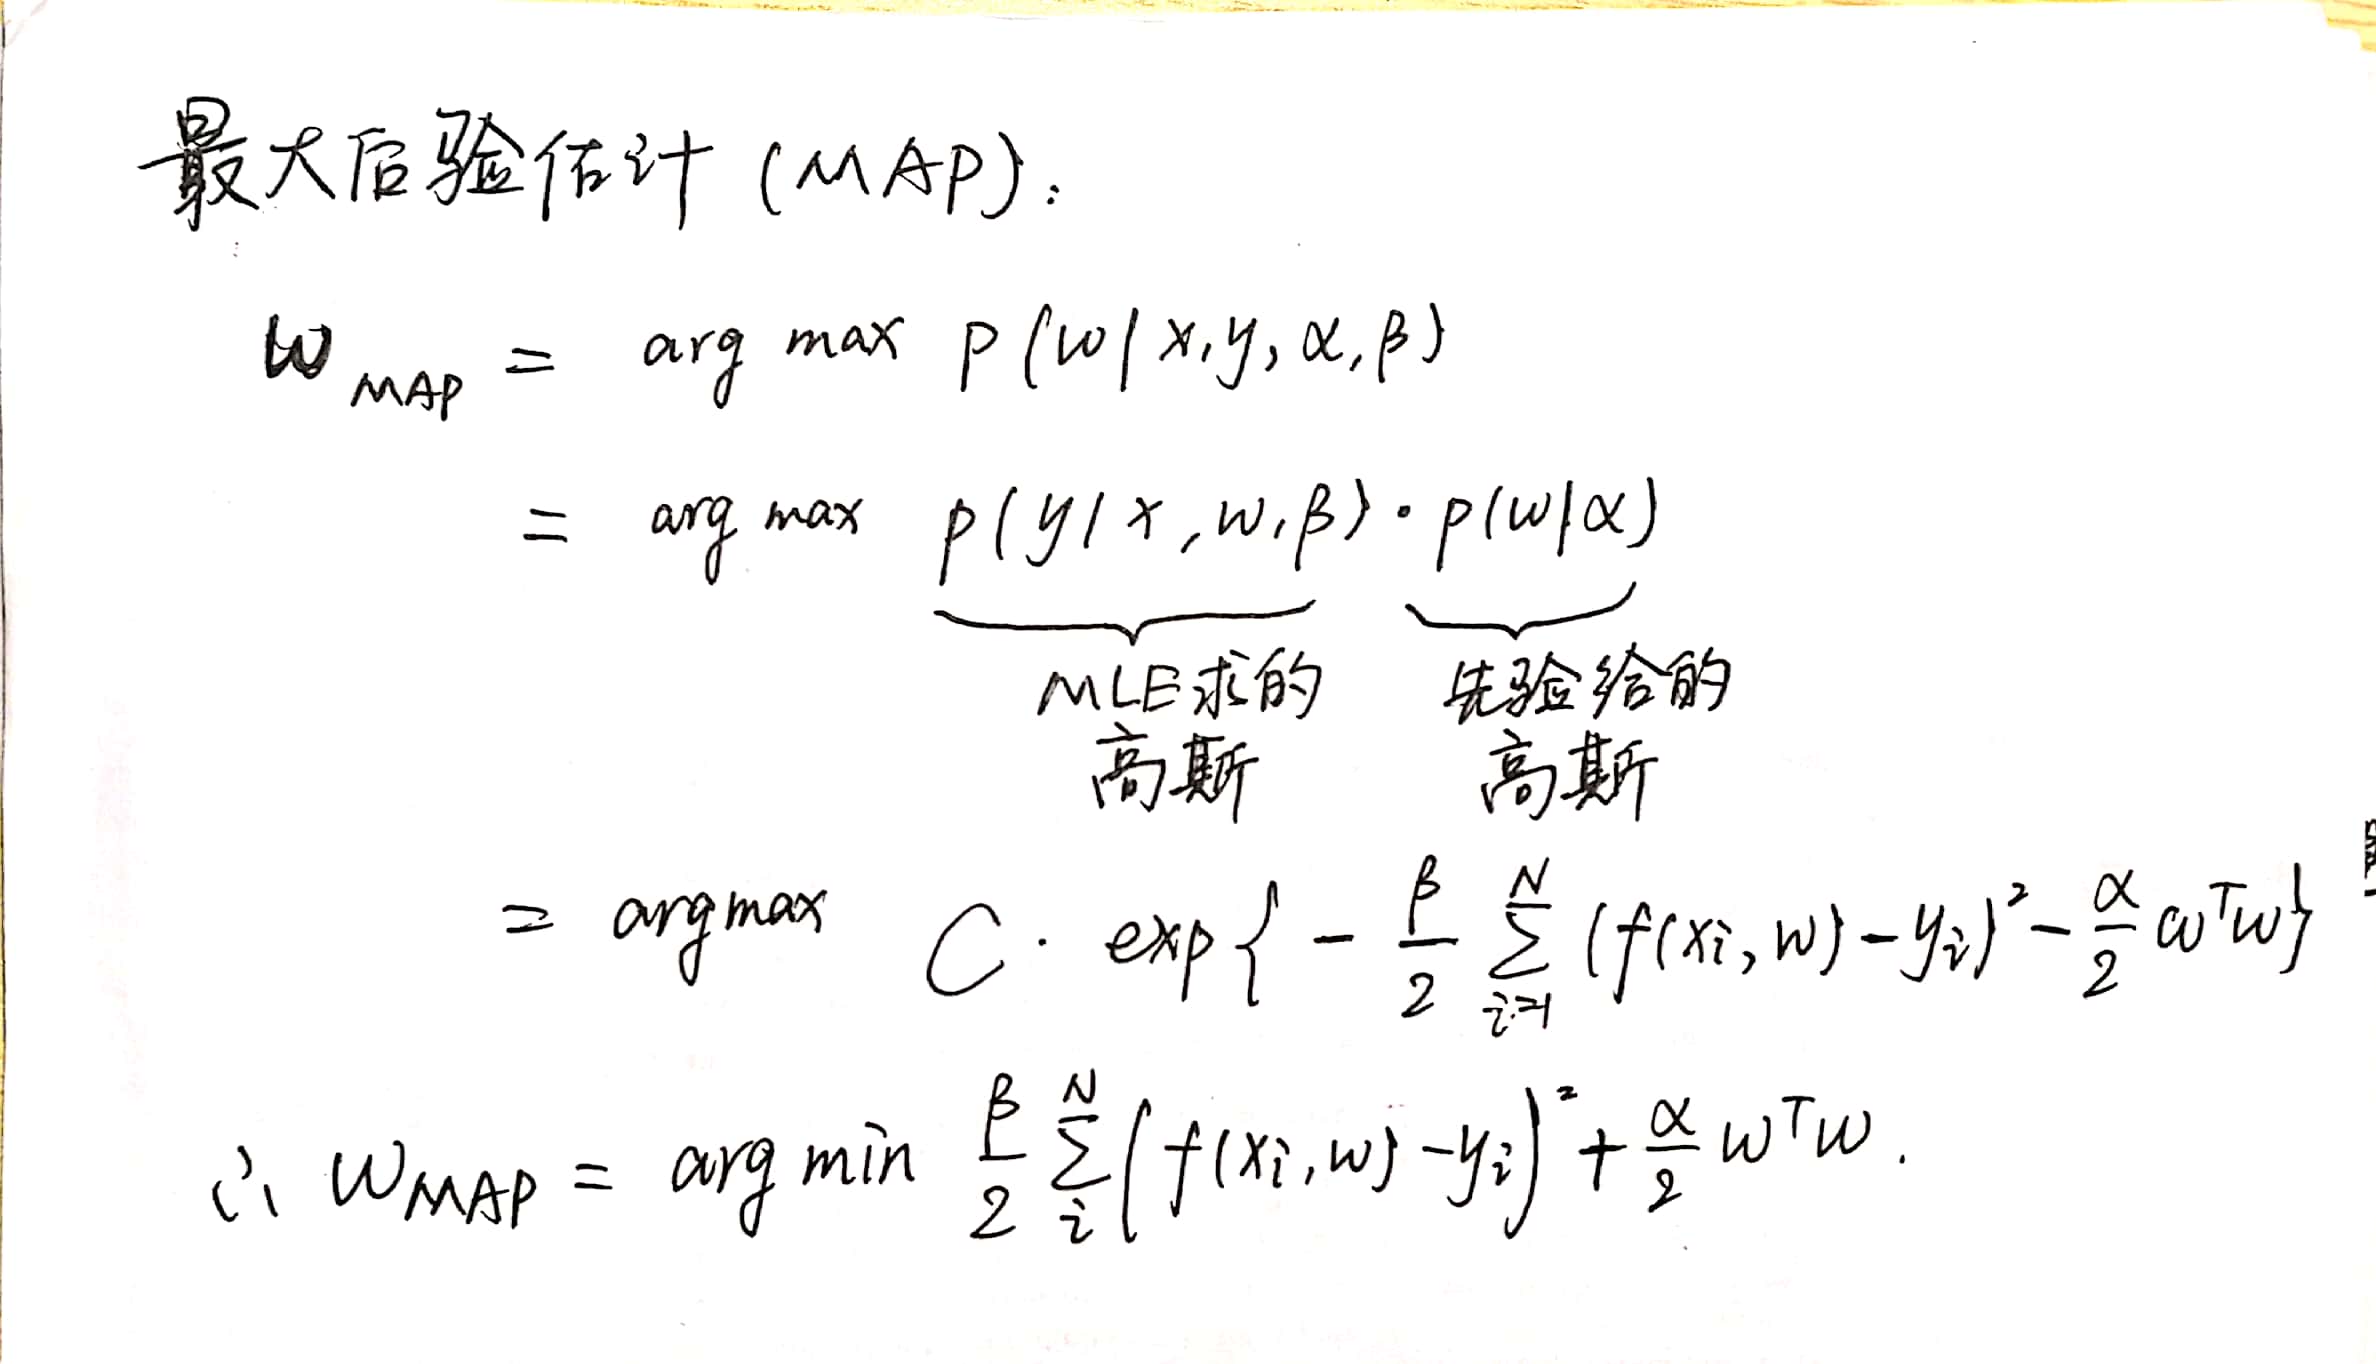 最大后验估计 (MAP):
w_MAP = arg max p(w|x,y,α,β)
= arg max p(y|x,w,β)·p(w|α)
MLE求的 先验给的
高斯 高斯
= argmax C · exp{ - β/2 Σ_{i=1}^{N} (f(xi,w)-yi)² - α/2 wᵀw}
∴ w_MAP = arg min β/2 Σ_i^N (f(xi,w)-yi)² + α/2 wᵀw.